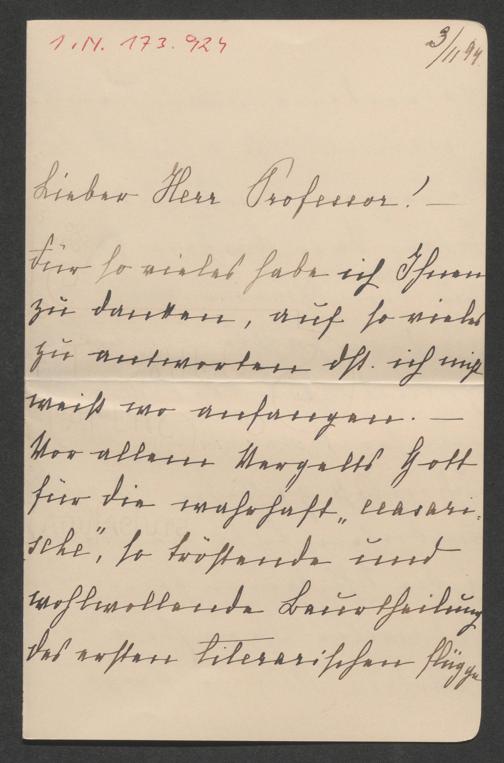 I.N. 173.924
3/11 94.
Lieber Herr Professor! —
Für so vieles habe ich Ihnen
zu danken, auf so vieles
zu antworten dß. ich nicht
weiß wo anfangen. —
Vor allem Vergelts Gott
für die wahrhaft „ceasari-
sche", so tröstende und
wohlwollende Beurtheilung
des ersten literarischen flügge